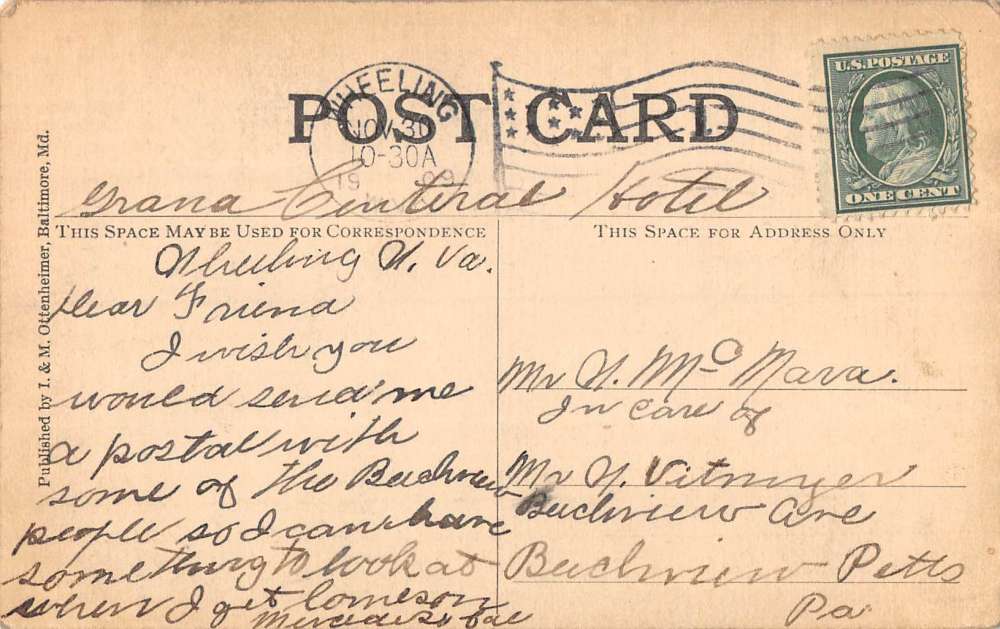 POST CARD
WHEELING
NOV 3
10-30A
19 09
U.S. POSTAGE
ONE CENT
Grand Central Hotel
THIS SPACE MAY BE USED FOR CORRESPONDENCE
THIS SPACE FOR ADDRESS ONLY
Published by I. & M. Ottenheimer, Baltimore, Md.
Wheeling W. Va.
Dear Friend
I wish you
would send me
a postal with
some of the Beechview
people so I can have
something to look at
when I get lonesom
Mr W. McMara.
In care of
Mr W. Vitmyer
Beechview Ave
Beechview Pitts
Pa